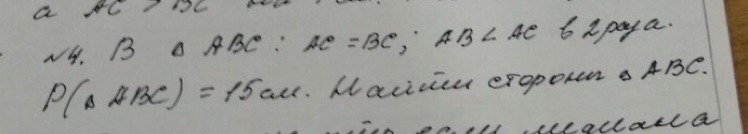 а AC > BC
№4. В △ ABC : AC = BC; AB < AC в 2 раза.
P(△ ABC) = 15 см. Найти стороны △ ABC.
если